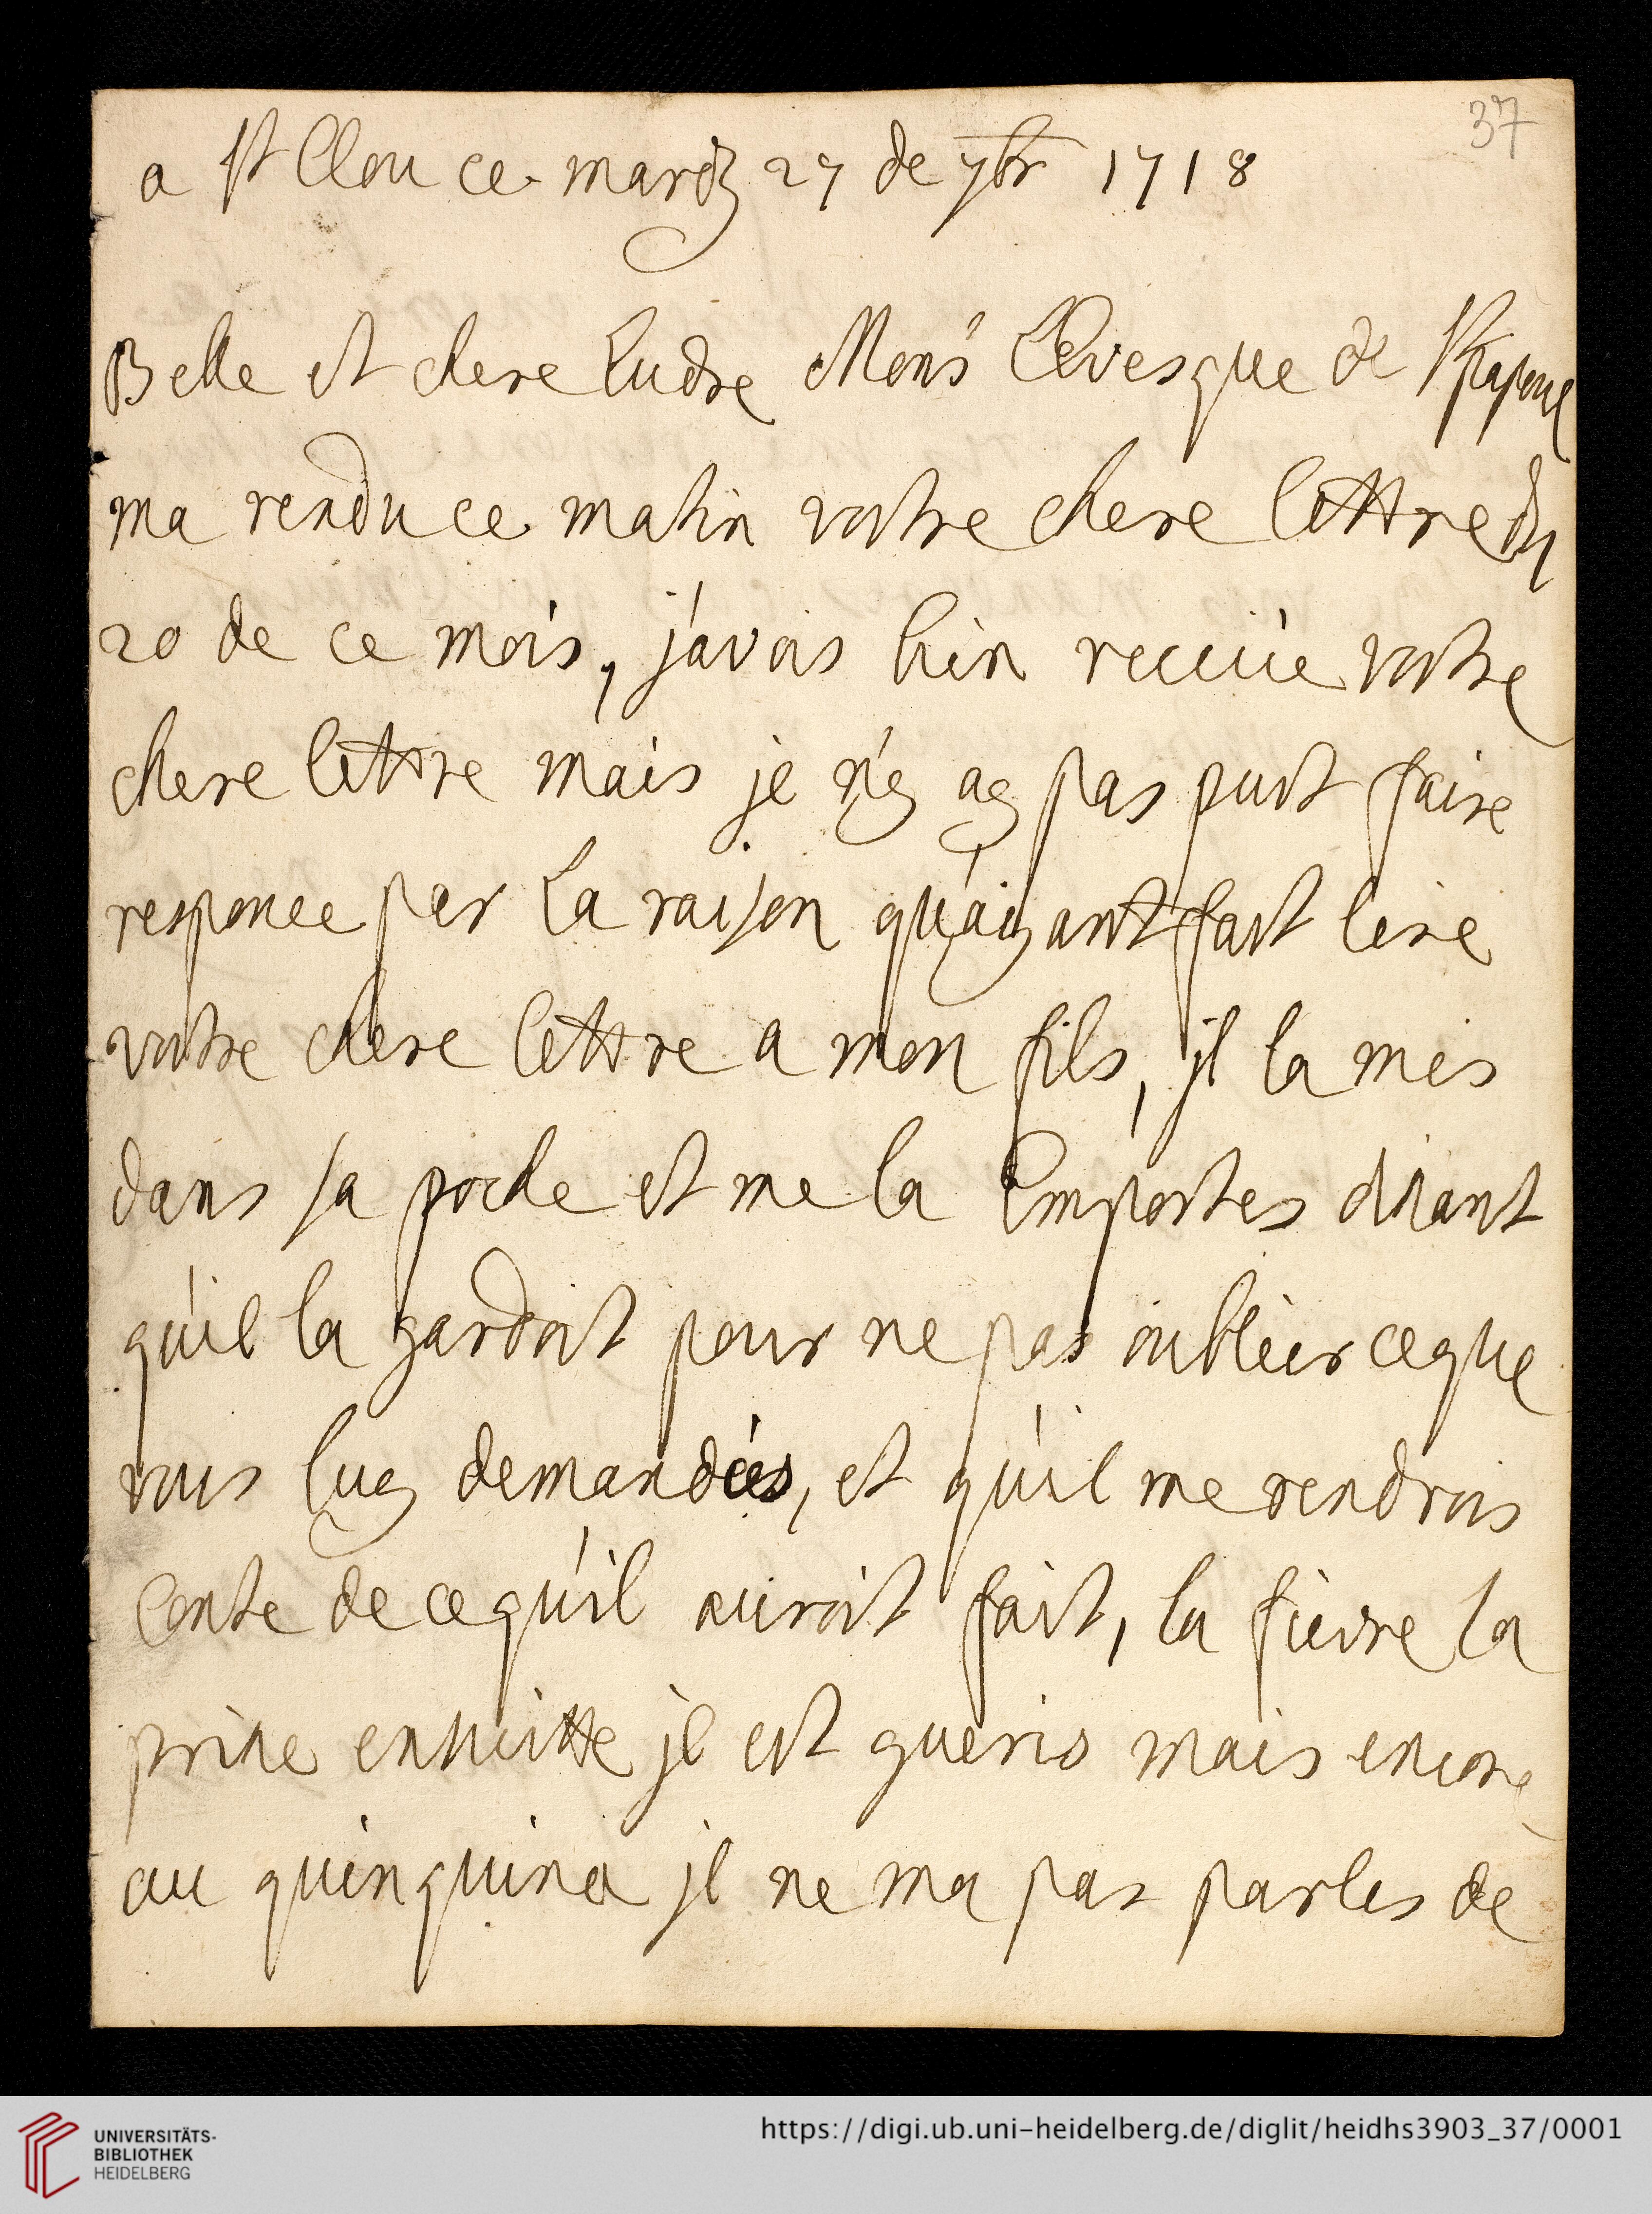 37
a St Clou ce mardy 27 de 7br 1718
Belle et chere Ludre Mons l'Evesque de St papoul
ma rendu ce matin vostre chere lettre du
20 de ce mois, j'avois bien receüe vostre
chere lettre mais je n'y ay pas pust faire
responce par la raison qu'ayant fait lire
vostre chere lettre a mon fils, jl la mis
dans sa poche et me la Emportes disant
qu'il la gardoit pour ne pas oublier ce que
vous luy demandées, et qu'il me rendrois
Conte de ce qu'il auroit fait, la fievre la
prise ensuitte jl est gueris mais encore
au quinquina jl ne ma pas parles de
UNIVERSITÄTS-
BIBLIOTHEK
HEIDELBERG
https://digi.ub.uni-heidelberg.de/diglit/heidhs3903_37/0001